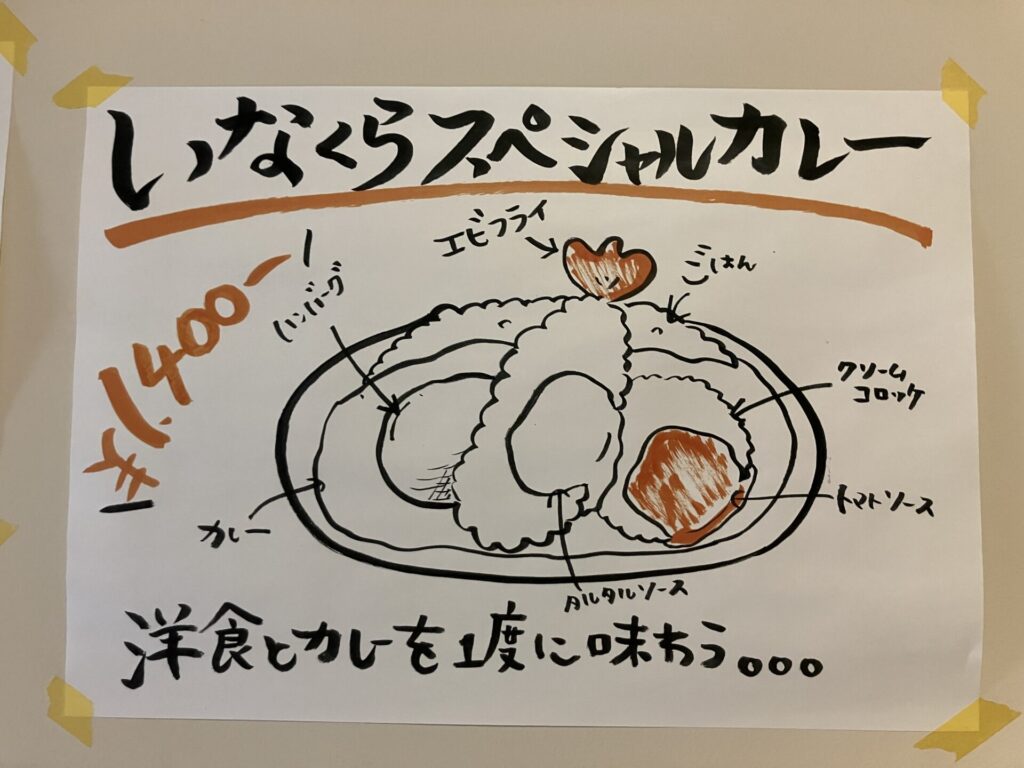 いなくらスペシャルカレー
¥1,400-
エビフライ
ごはん
ハンバーグ
クリーム
コロッケ
カレー
トマトソース
タルタルソース
洋食とカレーを1度に味わう。。。